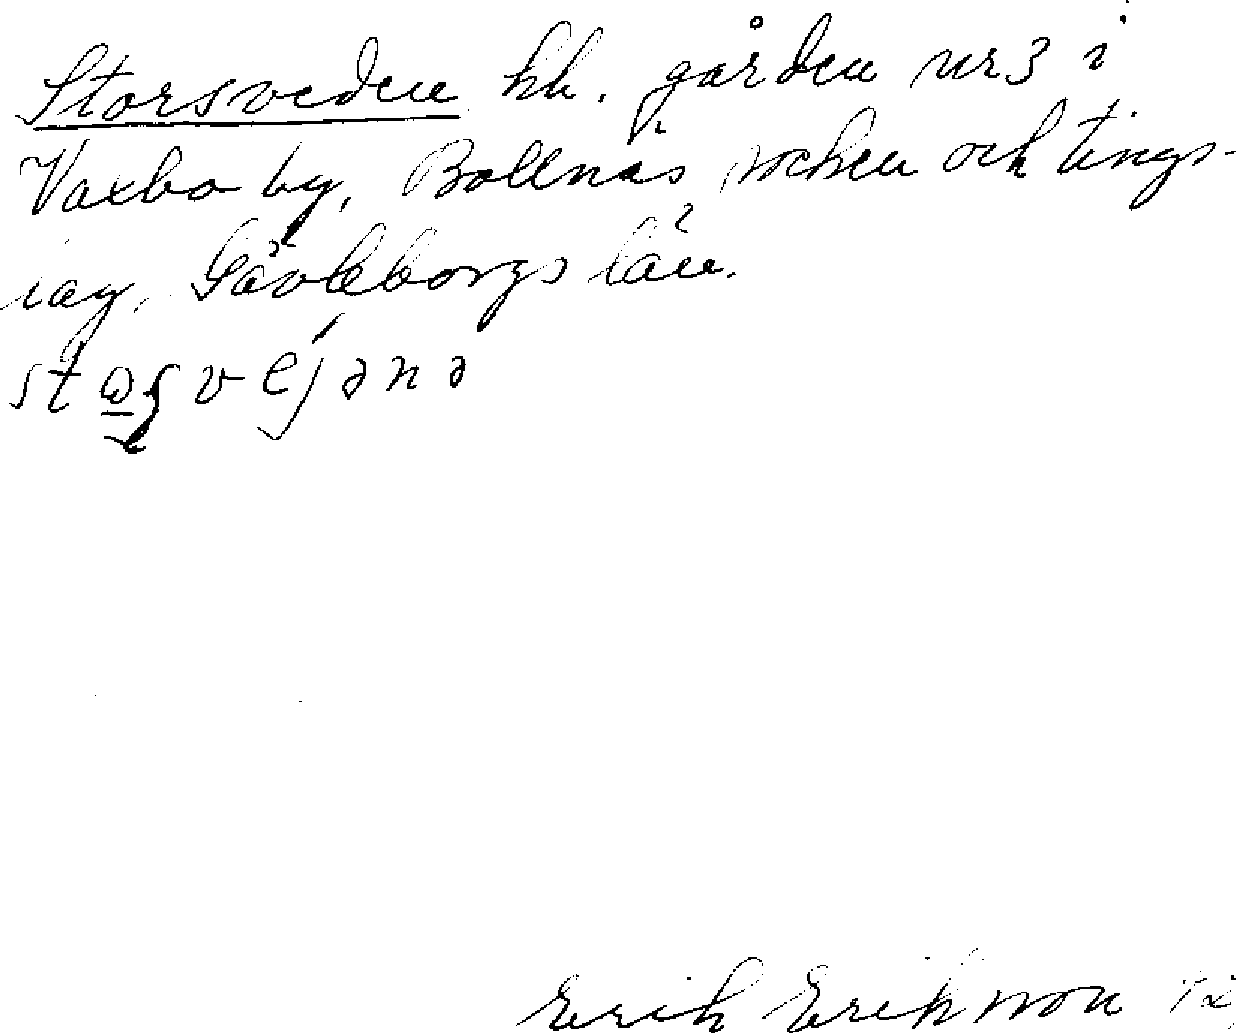 Storsveden hh. gården nr 3 i
Vaxbo by, Bollnäs socken och tings-
lag, Gävleborgs län.
Erik Erikson